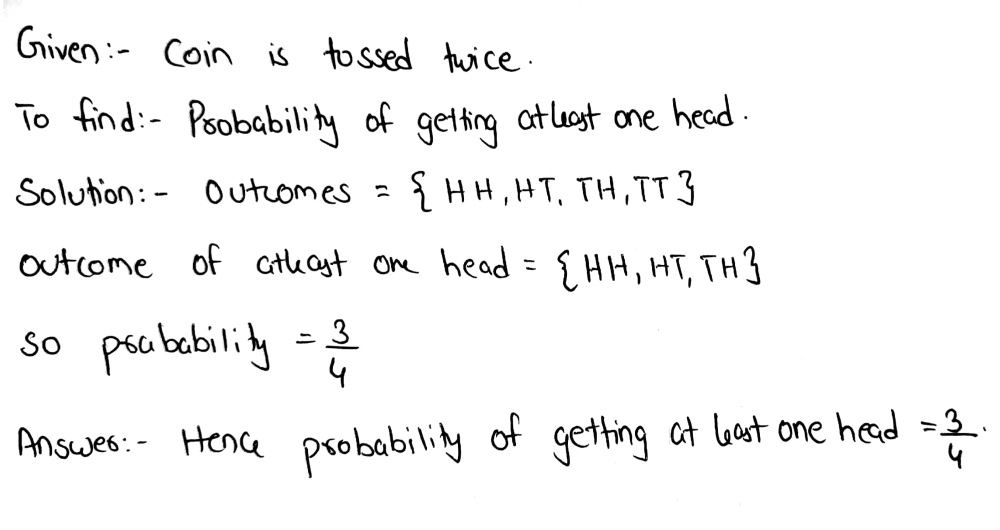 Given:- Coin is tossed twice.
To find:- Probability of getting atleast one head.
Solution:- Outcomes = { HH, HT, TH, TT }
Outcome of atleast one head = { HH, HT, TH }
So prabability = 3/4
Answer:- Hence probability of getting at least one head = 3/4.